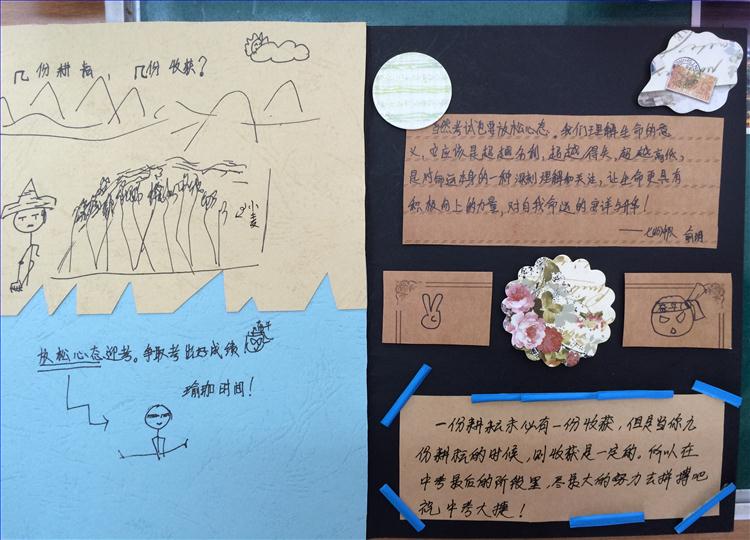 几份耕耘，几份收获？
小麦
放松心态迎考。争取考出好成绩
瑜珈时间！
当然考试也要放松心态。我们理解生命的意
义，它应该是超越名利，超越得失，超越高低，
是对命运本身的一种深刻理解和关注，让生命更具有
积极向上的力量，对自我命运的
奋斗
一份耕耘未必有一份收获，但是当你几
份耕耘的时候，则收获是一定的。所以在
中考最后的阶段里，尽最大的努力去拼搏吧
祝中考大捷！